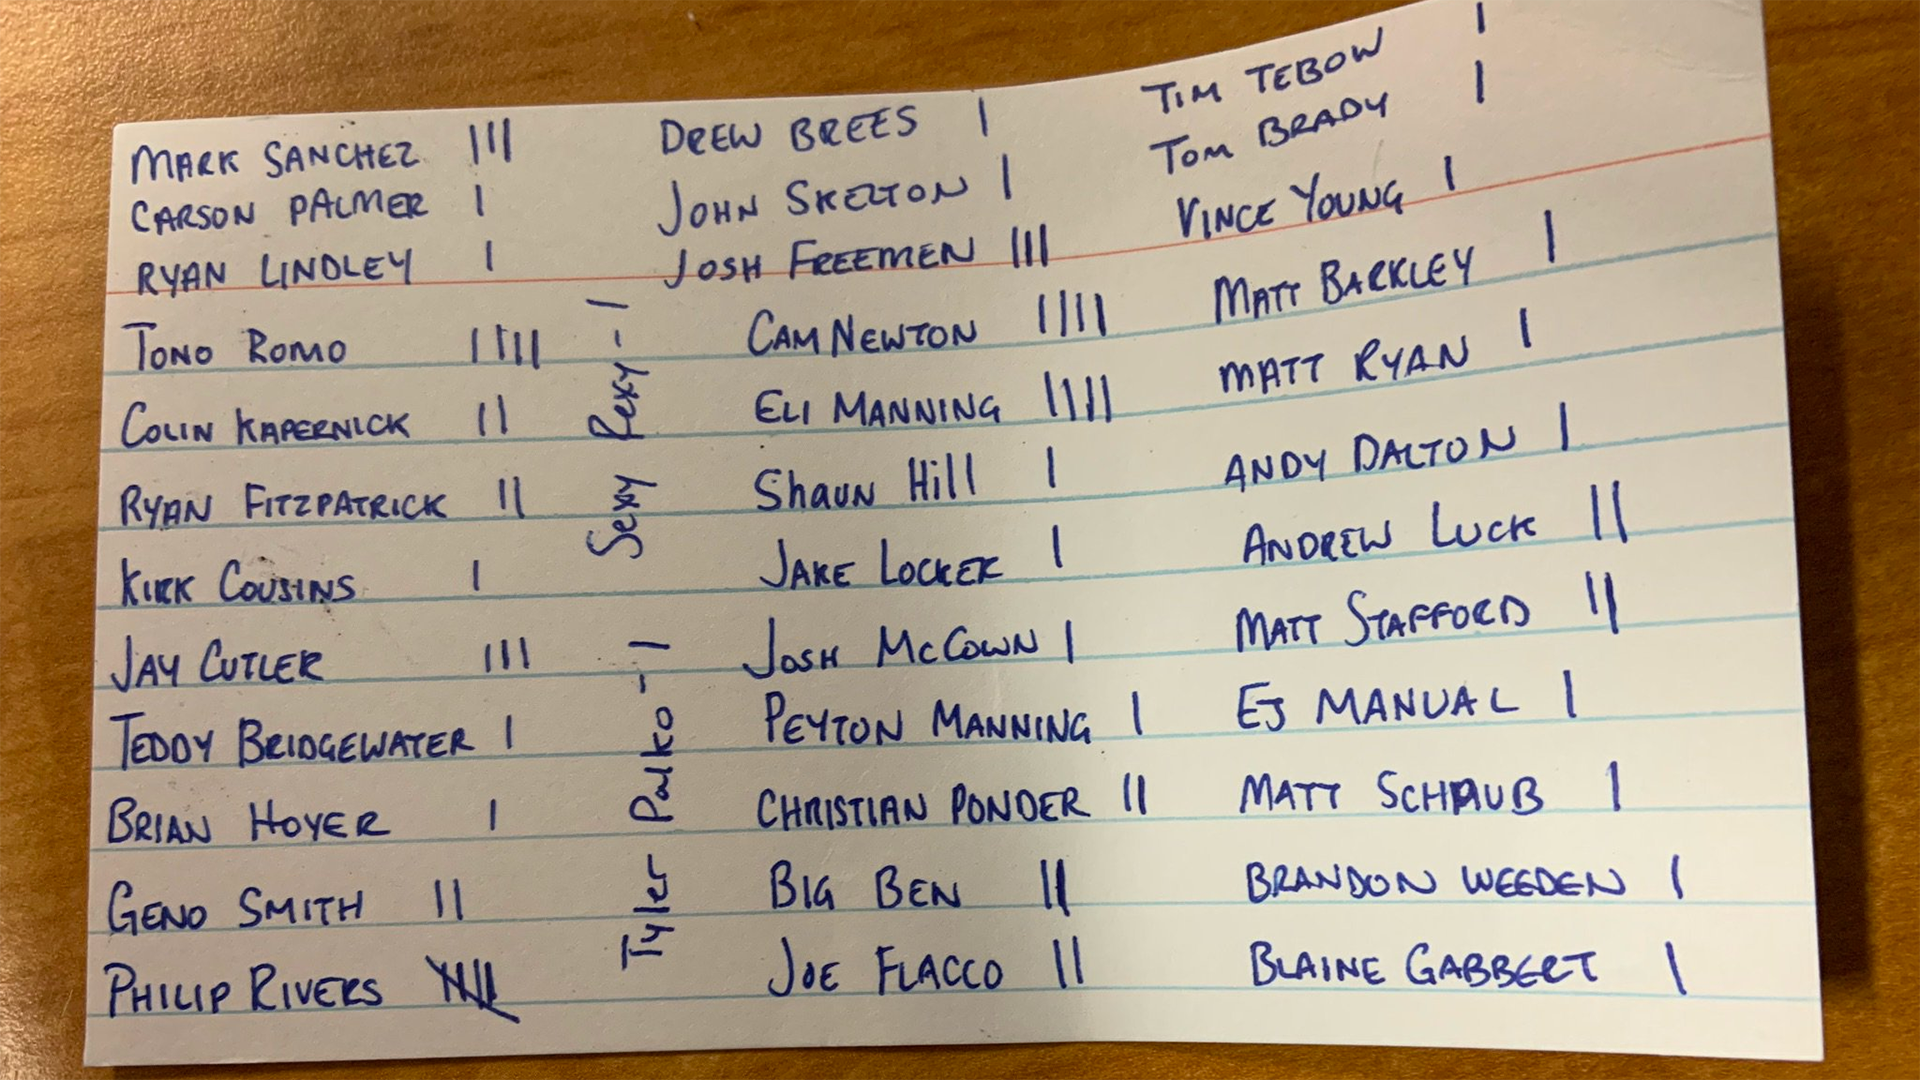 MARK SANCHEZ III
CARSON PALMER I
RYAN LINDLEY I
TONO ROMO IIIII
COLIN KAPERNICK II
RYAN FITZPATRICK II
KIRK COUSINS I
JAY CUTLER III
TEDDY BRIDGEWATER I
BRIAN HOYER I
GENO SMITH II
PHILIP RIVERS IIII
Sexy Rexy - I
Tyler Palko - I
DREW BREES I
JOHN SKELTON I
JOSH FREEMEN III
CAM NEWTON IIII
ELI MANNING IIII
Shaun Hill I
JAKE LOCKER I
JOSH McCOWN I
PEYTON MANNING I
CHRISTIAN PONDER II
BIG BEN II
JOE FLACCO II
TIM TEBOW I
TOM BRADY I
VINCE YOUNG I
MATT BARKLEY I
MATT RYAN I
ANDY DALTON I
ANDREW LUCK II
MATT STAFFORD II
EJ MANUAL I
MATT SCHAUB I
BRANDON WEEDEN I
BLAINE GABBERT I